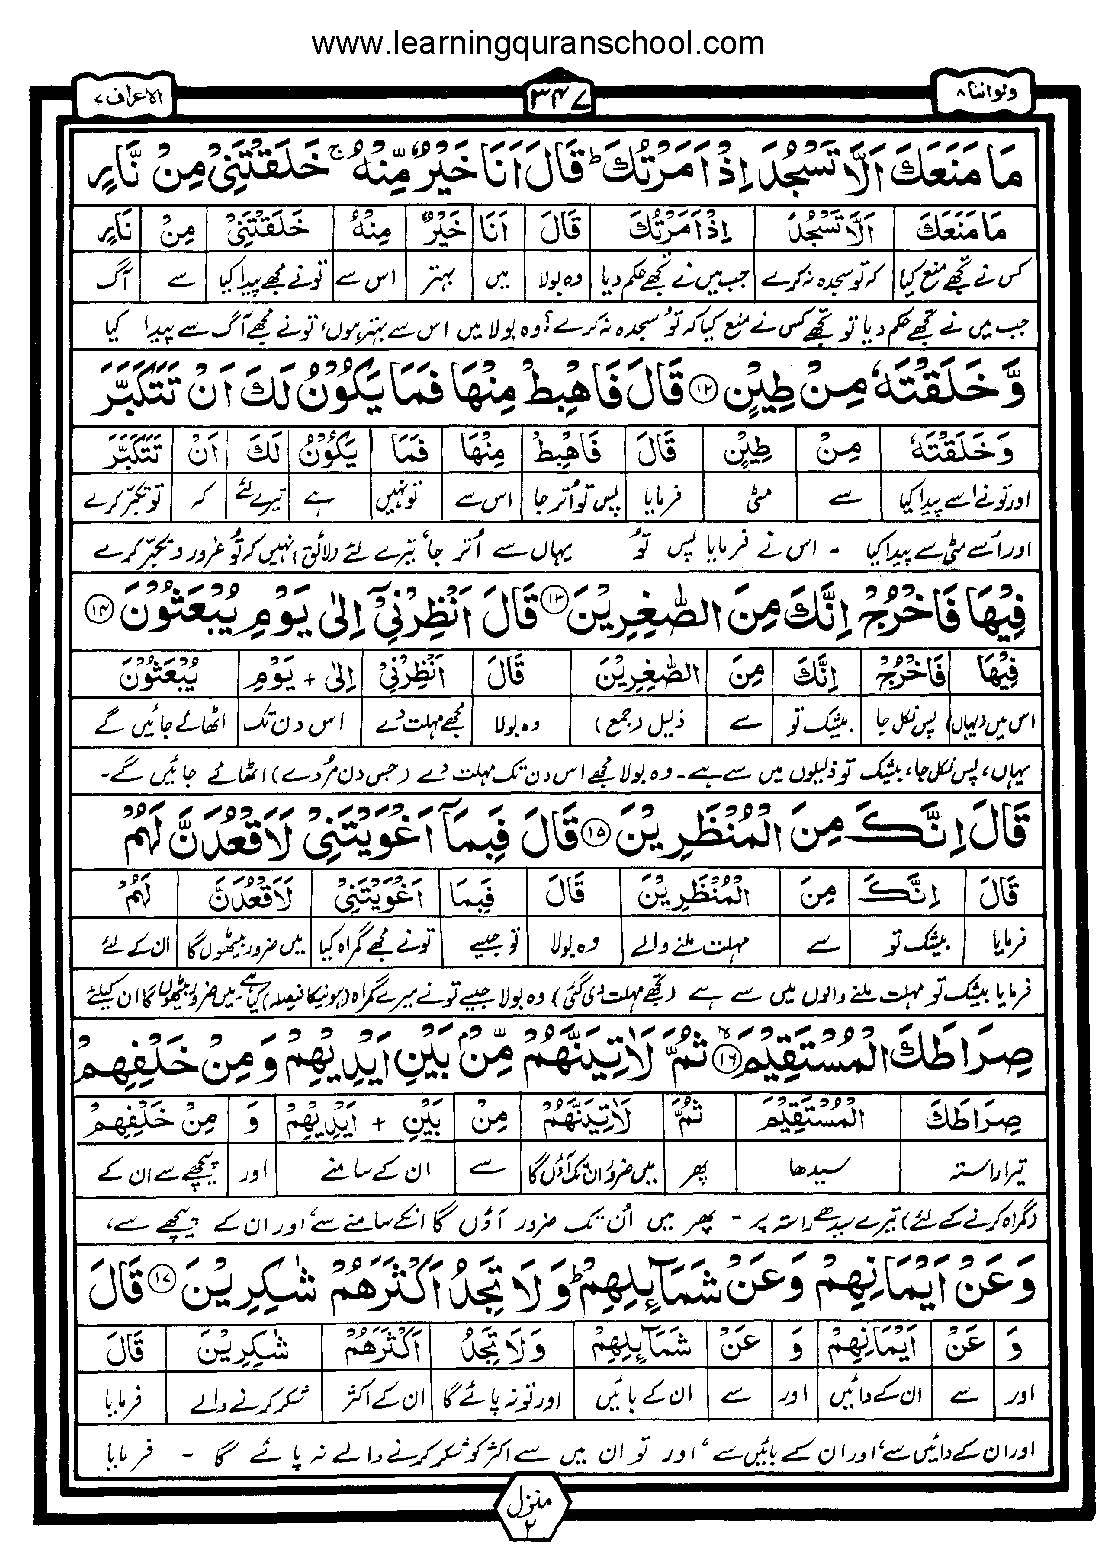 www.learningquranschool.com
ولواننا ۸
۳۴۷
الاعراف ۷
مَا مَنَعَكَ اَلَّا تَسْجُدَ اِذْ اَمَرْتُكَ ؕ قَالَ اَنَا خَيْرٌ مِّنْهُ ۚ خَلَقْتَنِيْ مِنْ نَّارٍ
مَا مَنَعَكَ اَلَّا تَسْجُدَ اِذْ اَمَرْتُكَ قَالَ اَنَا خَيْرٌ مِنْهُ خَلَقْتَنِيْ مِنْ نَارٍ
کس نے تجھے منع کیا کہ تو سجدہ نہ کرے جب میں نے تجھے حکم دیا وہ بولا میں بہتر اس سے تونے مجھے پیدا کیا سے آگ
جب میں نے تجھے حکم دیا تو تجھے کس نے منع کیا کہ تو سجدہ نہ کرے؟ وہ بولا میں اس سے بہتر ہوں، تونے مجھے آگ سے پیدا کیا
وَّخَلَقْتَهٗ مِنْ طِيْنٍ ۱۲ قَالَ فَاهْبِطْ مِنْهَا فَمَا يَكُوْنُ لَكَ اَنْ تَتَكَبَّرَ
وَخَلَقْتَهٗ مِنْ طِيْنٍ قَالَ فَاهْبِطْ مِنْهَا فَمَا يَكُوْنُ لَكَ اَنْ تَتَكَبَّرَ
اور تونے اسے پیدا کیا سے مٹی فرمایا پس تو اتر جا اس سے تو نہیں ہے تیرے لئے کہ تو تکبر کرے
اور اُسے مٹی سے پیدا کیا ۔ اس نے فرمایا پس تو یہاں سے اُتر جا، تیرے لئے (لائق) نہیں کہ تو غرور و تکبر کرے
فِيْهَا فَاخْرُجْ اِنَّكَ مِنَ الصّٰغِرِيْنَ ۱۳ قَالَ اَنْظِرْنِيْٓ اِلٰى يَوْمِ يُبْعَثُوْنَ ۱۴
فِيْهَا فَاخْرُجْ اِنَّكَ مِنَ الصّٰغِرِيْنَ قَالَ اَنْظِرْنِيْ اِلٰى + يَوْمِ يُبْعَثُوْنَ
اس میں (یہاں) پس نکل جا بیشک تو سے ذلیل (جمع) وہ بولا مجھے مہلت دے اس دن تک اٹھائے جائیں گے
یہاں، پس نکل جا، بیشک تو ذلیلوں میں سے ہے۔ وہ بولا مجھے اس دن تک مہلت دے (جس دن مردے) اٹھائے جائیں گے۔
قَالَ اِنَّكَ مِنَ الْمُنْظَرِيْنَ ۱۵ قَالَ فَبِمَآ اَغْوَيْتَنِيْ لَاَقْعُدَنَّ لَهُمْ
قَالَ اِنَّكَ مِنَ الْمُنْظَرِيْنَ قَالَ فَبِمَا اَغْوَيْتَنِيْ لَاَقْعُدَنَّ لَهُمْ
فرمایا بیشک تو سے مہلت ملنے والے وہ بولا تو جیسے تونے مجھے گمراہ کیا میں ضرور بیٹھوں گا ان کے لئے
فرمایا بیشک تو مہلت ملنے والوں میں سے ہے (تجھے مہلت دی گئی) وہ بولا جیسے تونے میرے گمراہ (ہونیکا فیصلہ) کیا ہے میں ضرور بیٹھوں گا ان کیلئے
صِرَاطَكَ الْمُسْتَقِيْمَ ۱۶ ثُمَّ لَاٰتِيَنَّهُمْ مِّنْۢ بَيْنِ اَيْدِيْهِمْ وَمِنْ خَلْفِهِمْ
صِرَاطَكَ الْمُسْتَقِيْمَ ثُمَّ لَاٰتِيَنَّهُمْ مِنْ بَيْنِ + اَيْدِيْهِمْ وَ مِنْ خَلْفِهِمْ
تیرا راستہ سیدھا پھر میں ضرور ان تک آؤں گا سے ان کے سامنے اور پیچھے سے ان کے
(گمراہ کرنے کے لئے) تیرے سیدھے راستہ پر ۔ پھر میں اُن تک ضرور آؤں گا انکے سامنے سے، اور ان کے پیچھے سے،
وَعَنْ اَيْمَانِهِمْ وَعَنْ شَمَآئِلِهِمْ ؕ وَلَا تَجِدُ اَكْثَرَهُمْ شٰكِرِيْنَ ۱۷ قَالَ
وَ عَنْ اَيْمَانِهِمْ وَ عَنْ شَمَآئِلِهِمْ وَلَا تَجِدُ اَكْثَرَهُمْ شٰكِرِيْنَ قَالَ
اور سے ان کے دائیں اور سے ان کے بائیں اور تو نہ پائے گا ان کے اکثر شکر کرنے والے فرمایا
اور ان کے دائیں سے، اور ان کے بائیں سے، اور تو ان میں سے اکثر کو شکر کرنے والے نہ پائے گا ۔ فرمایا
منزل ۲